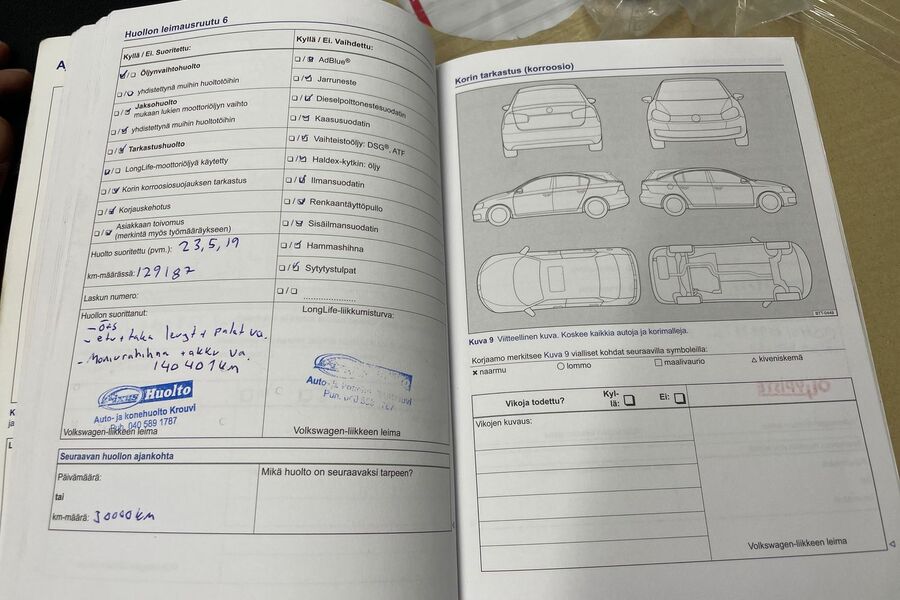 Huollon leimausruutu 6
Kyllä / Ei. Suoritettu:
Öljynvaihtohuolto
yhdistettynä muihin huoltotöihin
Jaksohuolto
mukaan lukien moottoriöljyn vaihto
yhdistettynä muihin huoltotöihin
Tarkastushuolto
LongLife-moottoriöljyä käytetty
Korin korroosiosuojauksen tarkastus
Korjauskehotus
Asiakkaan toivomus
(merkintä myös työmääräykseen)
Huolto suoritettu (pvm.): 23,5,19
km-määrässä: 129187
Laskun numero:
Huollon suorittanut:
- etu + taka levyt + palat va.
- Moniurahihna + akku va.
140401 km
Huolto
Auto- ja konehuolto Krouvi
Puh. 040 589 1787
Volkswagen-liikkeen leima
Kyllä / Ei. Vaihdettu:
AdBlue®
Jarruneste
Dieselpolttonestesuodatin
Kaasusuodatin
Vaihteistoöljy: DSG®, ATF
Haldex-kytkin: öljy
Ilmansuodatin
Renkaantäyttöpullo
Sisäilmansuodatin
Hammashihna
Sytytystulpat
LongLife-liikkurnisturva:
Volkswagen-liikkeen leima
Seuraavan huollon ajankohta
Päivämäärä:
tai
km-määrä: 30000 km
Mikä huolto on seuraavaksi tarpeen?
Korin tarkastus (korroosio)
Kuva 9 Viitteellinen kuva. Koskee kaikkia autoja ja korimalleja.
Korjaamo merkitsee Kuva 9 vialliset kohdat seuraavilla symboleilla:
x naarmu ○ lommo □ maalivaurio △ kiveniskemä
Vikoja todettu? Kyl-
lä: Ei:
Vikojen kuvaus:
Volkswagen-liikkeen leima